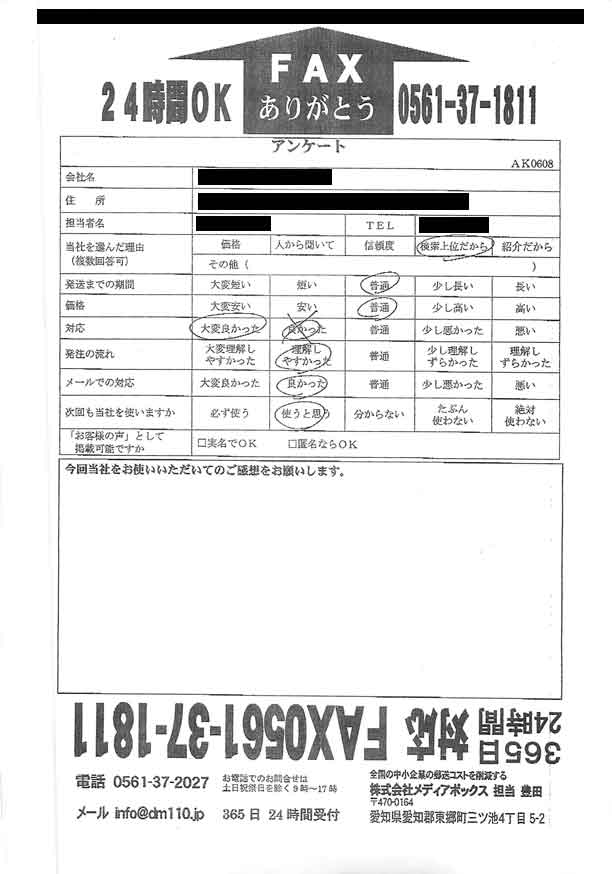 FAX
ありがとう
24時間OK
0561-37-1811
アンケート
AK0608
会社名
住 所
担当者名 TEL
当社を選んだ理由
(複数回答可)
価格 人から聞いて 信頼度 検索上位だから 紹介だから
その他 ( )
発送までの期間 大変短い 短い 普通 少し長い 長い
価格 大変安い 安い 普通 少し高い 高い
対応 大変良かった 良かった 普通 少し悪かった 悪い
発注の流れ 大変理解し
やすかった 理解し
やすかった 普通 少し理解し
ずらかった 理解し
ずらかった
メールでの対応 大変良かった 良かった 普通 少し悪かった 悪い
次回も当社を使いますか 必ず使う 使うと思う 分からない たぶん
使わない 絶対
使わない
「お客様の声」として
掲載可能ですか
□実名でOK □匿名ならOK
今回当社をお使いいただいてのご感想をお願いします。
365日
24時間
対応
FAX0561-37-1811
電話 0561-37-2027
お電話でのお問合せは
土日祝祭日を除く9時~17時
メール info@dm110.jp
365日 24時間受付
全国の中小企業の郵送コストを削減する
株式会社メディアボックス 担当 豊田
〒470-0164
愛知県愛知郡東郷町三ツ池4丁目5-2